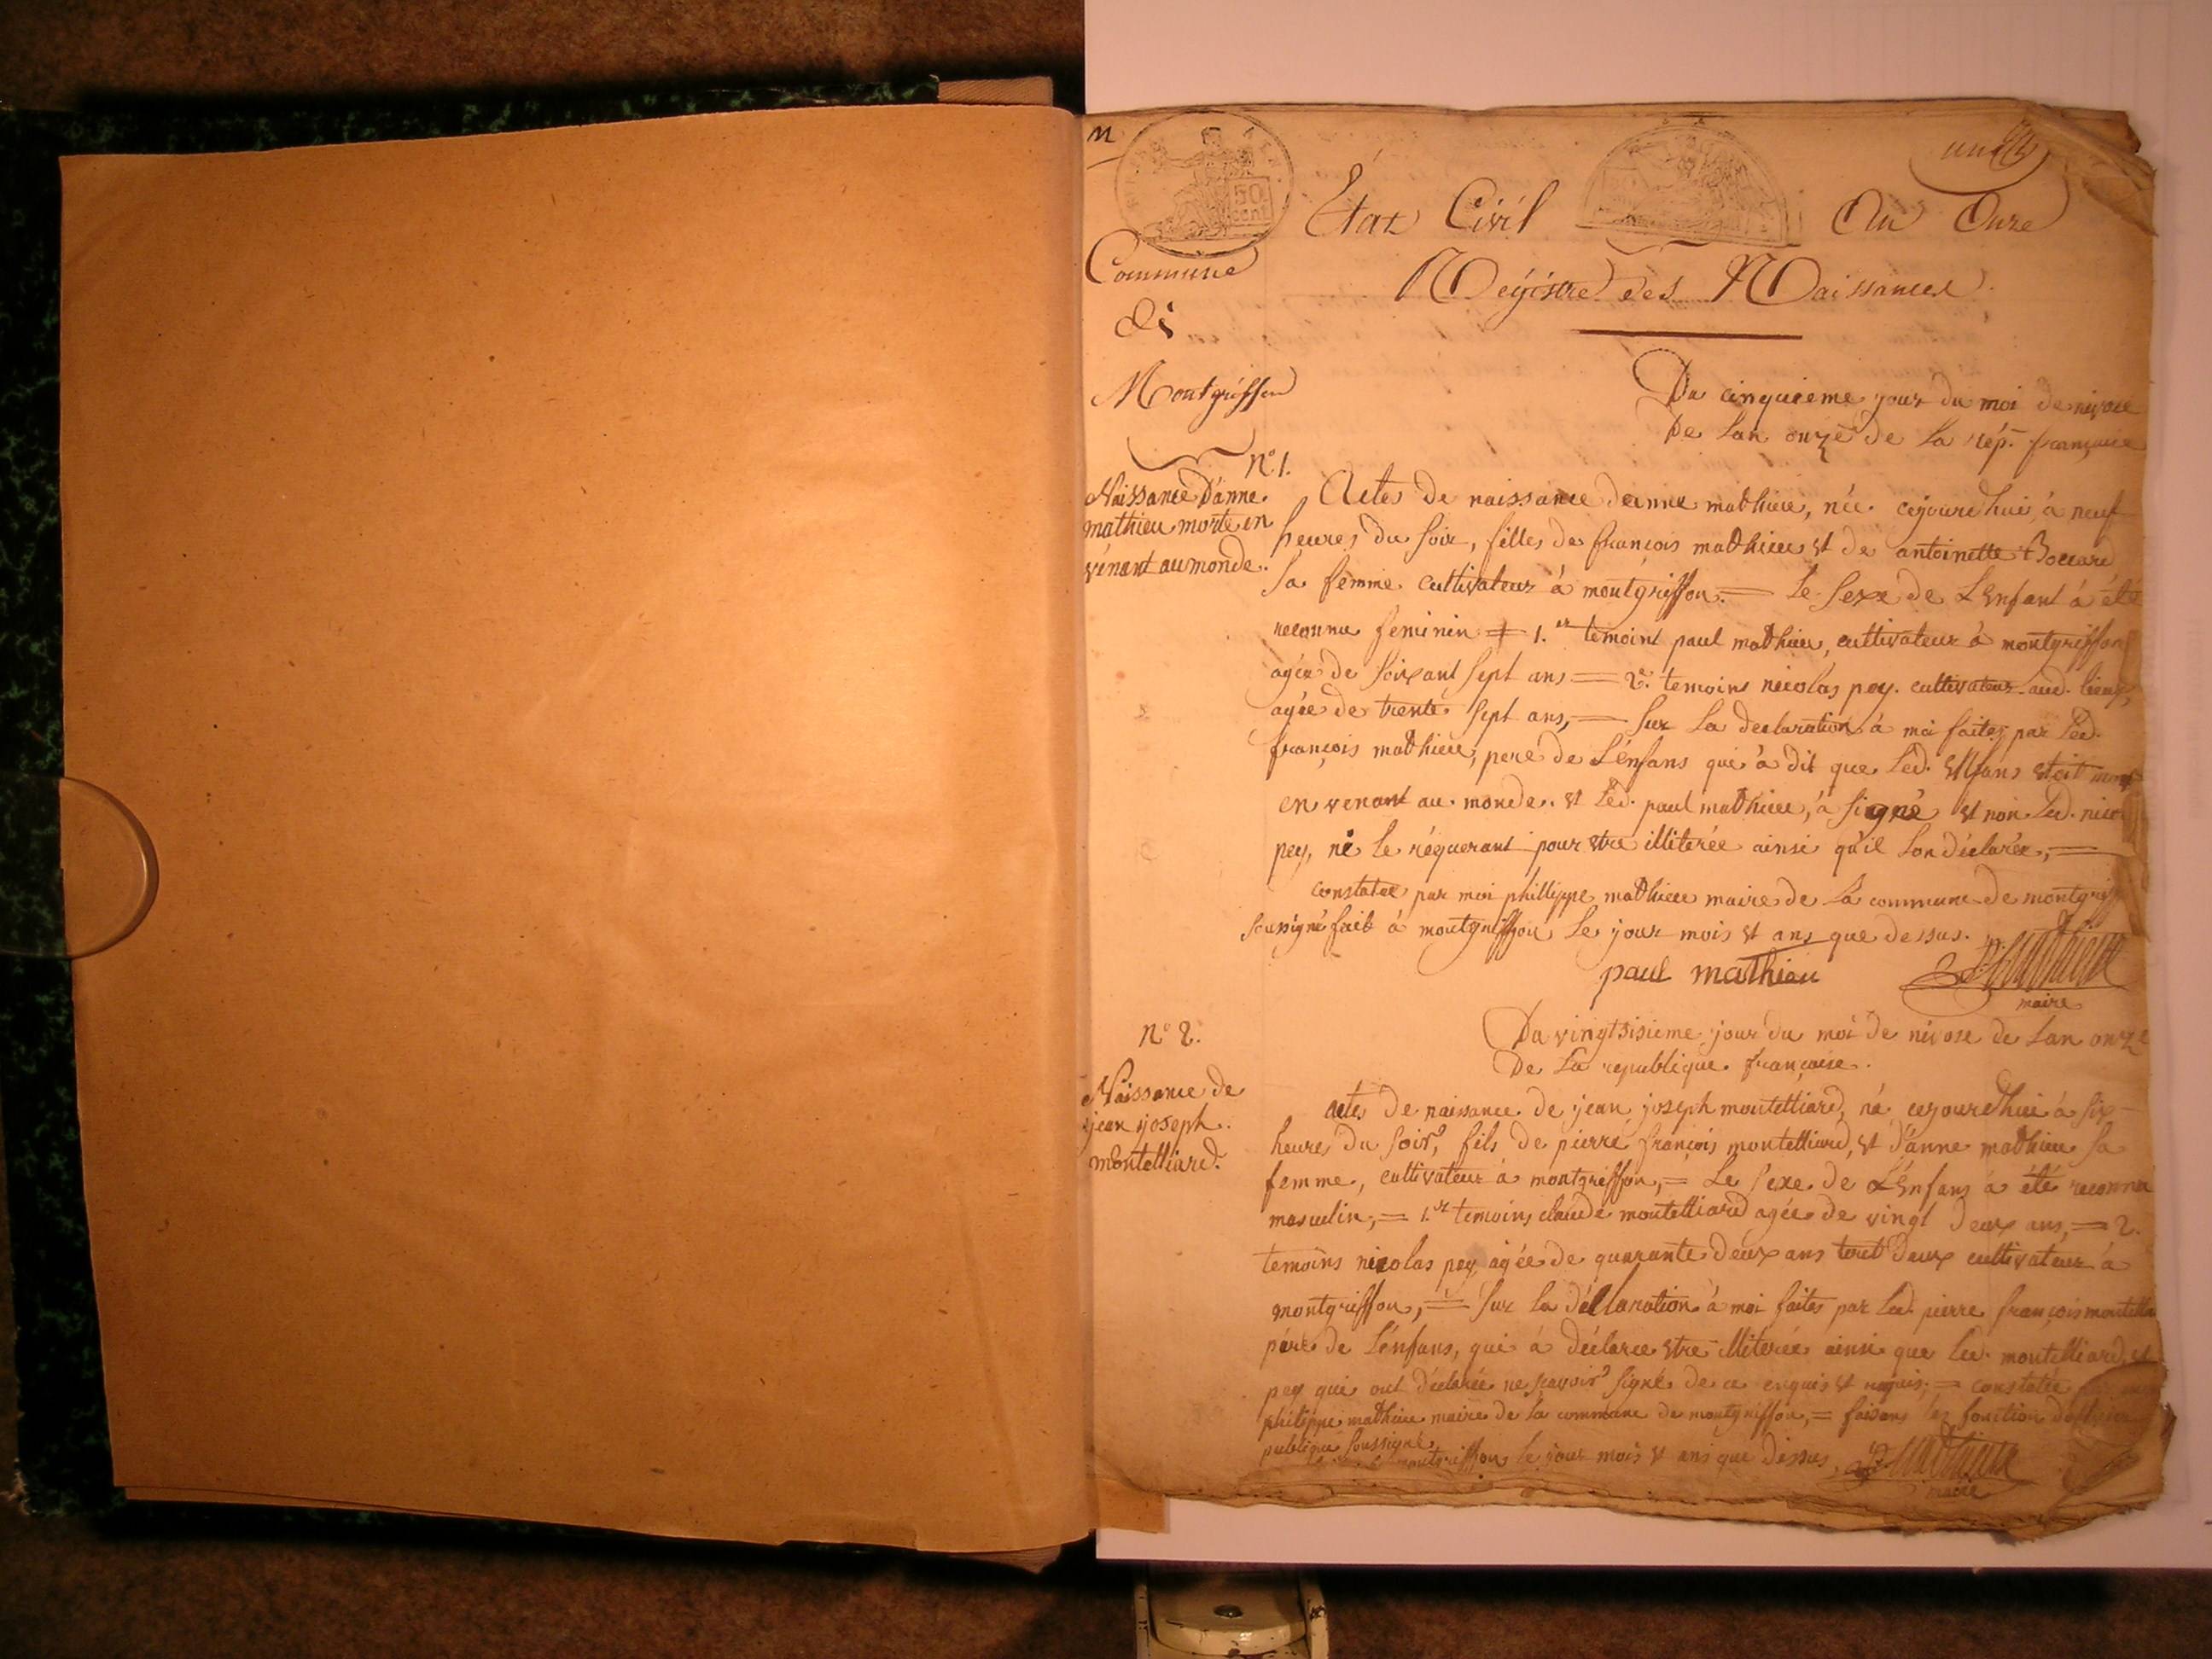 État Civil An Onze
Commune
Régistre des Naissances
De
Montgriffon
Du cinquieme jour du moi de nivose
De Lan onze de La rép. française
N° 1.
Naissance D'anne
mathieu morte en
vénant au monde.
Actes de naissance deanne mathieu, née cejourd'hui, à neuf
heures du soir, filles de françois mathieu et de antoinette Boccard
sa femme cultivateur à montgriffon = Le sexe de L'Enfant à été
reconnu feminin = 1.er temoint paul mathieu, cultivateur à montgriffon
agée de soixant sept ans = 2.e temoins nicolas pey. cultivateur aud. lieux,
agée de trente sept ans, = sur La declaration à moi faites par Led.
françois mathieu, peré de L'énfans qui à dit que Led. Enfans etoit mort
en venant au monde. et Led. paul mathieu, à signé et non Led. nicolas
pey, ni le réquerant pour etre illiterée ainsi qu'il Lon déclarée, =
constatée par moi phillippe mathieu maire de La commune de montgriffon
soussigné fait à montgriffon Le jour mois et ans que dessus.
paul mathieu
mathieu
maire
N° 2.
Du vingtsisieme jour du moi de nivose de Lan onze
De La republique française.
Naissance de
jean joseph
montelliard.
actes de naissance de jean joseph montelliard, né cejourdhui à six
heures du soir, fils de pierre françois montelliard, et d'anne mathieu sa
femme, cultivateur à montgriffon, = Le sexe de L'Enfans à été reconnu
masculin, = 1.er temoins claude montelliard agée de vingt deux ans, = 2.
temoins nicolas pey, agée de quarante deux ans tout deux cultivateur à
montgriffon, = sur la déclaration à moi faites par Led. pierre françois
pére de L'énfans, qui à déclaree etre illiterée ainsi que Led. montelliard, et
pey qui ont déclarée ne scavoir signé de ce enquis et requis; = constatée
philippe mathieu maire de la commune de montgriffon, = faisans les fonction
publique soussigné
montgriffon le jour mois et ans que dessus,
mathieu
maire